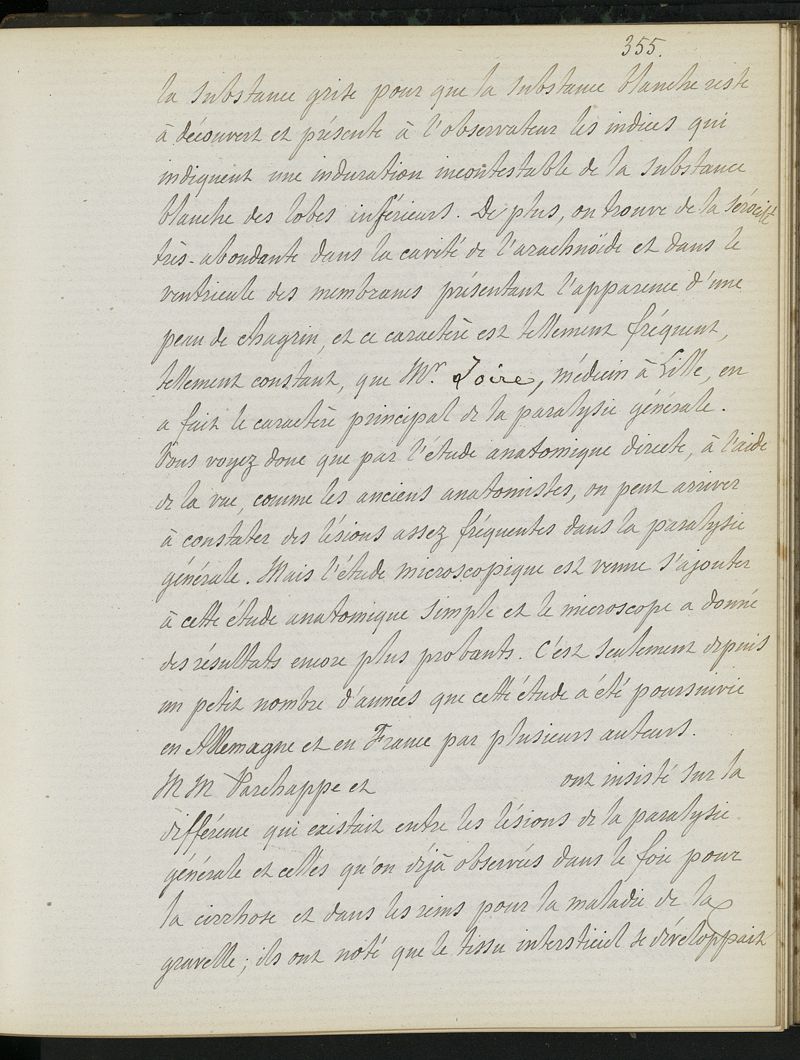 355.
la substance grise pour que la substance blanche reste
à découvert et présente à l'observateur les indices qui
indiquent une induration incontestable de la substance
blanche des lobes inférieurs. De plus, on trouve de la sérosité
très-abondante dans la cavité de l'arachnoïde et dans le
ventricule des membranes présentant l'apparence d'une
peau de chagrin, et ce caractère est tellement fréquent,
tellement constant, que Mr. Joire, médecin à Lille, en
a fait le caractère principal de la paralysie générale.
Vous voyez donc que par l'étude anatomique directe, à l'aide
de la vue, comme les anciens anatomistes, on peut arriver
à constater des lésions assez fréquentes dans la paralysie
générale. Mais l'étude microscopique est venue s'ajouter
à cette étude anatomique simple et le microscope a donné
des résultats encore plus probants. C'est seulement depuis
un petit nombre d'années que cette étude a été poursuivie
en Allemagne et en France par plusieurs auteurs.
M M Parchappe et ont insisté sur la
différence qui existait entre les lésions de la paralysie
générale et celles qu'on déjà observées dans le foie pour
la cirrhose et dans les reins pour la maladie de la
gravelle; ils ont noté que le tissu intersticiel se développait